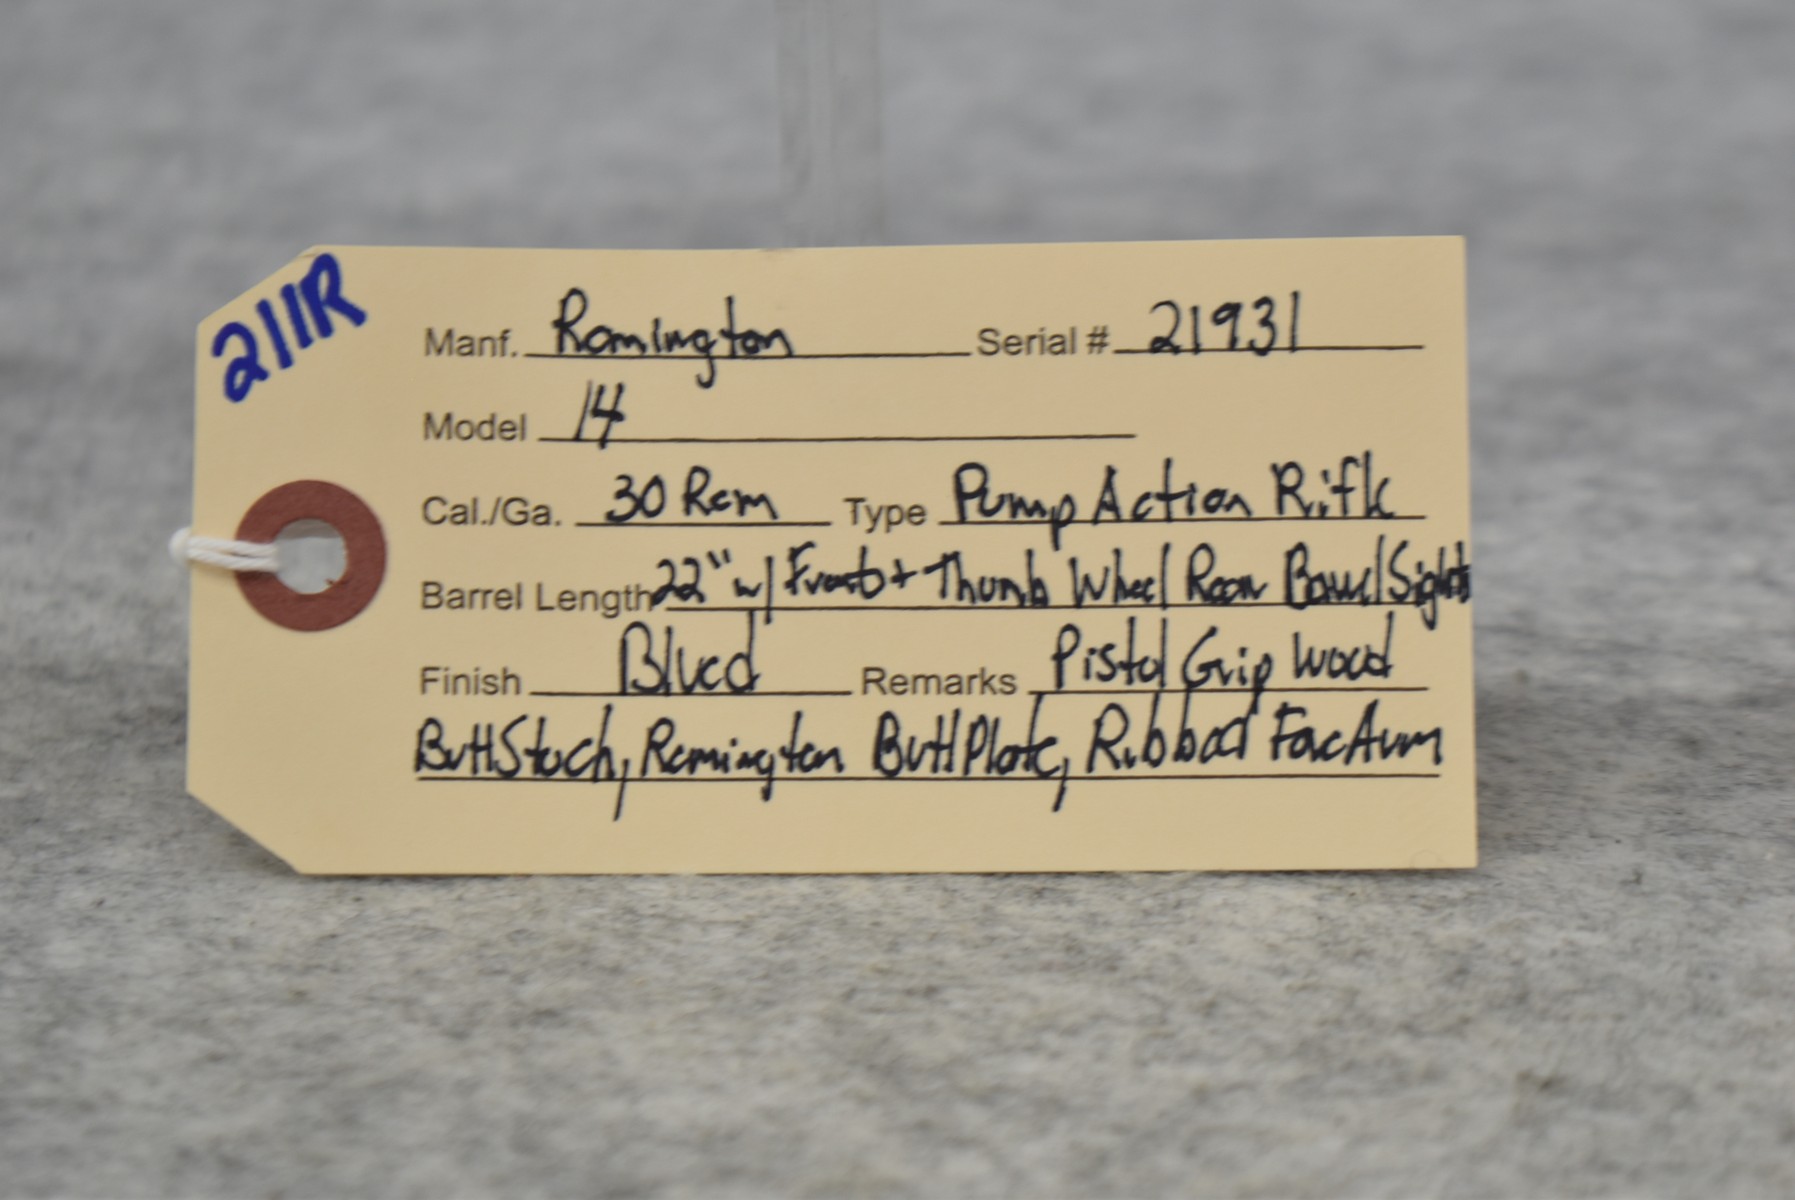 211R
Manf. Remington Serial # 21931
Model 14
Cal./Ga. 30 Rem Type Pump Action Rifle
Barrel Length 22" w/ Front + Thumb Wheel Rear Barrel Sights
Finish Blued Remarks Pistol Grip Wood
ButtStock, Remington ButtPlate, Ribbed ForeArm